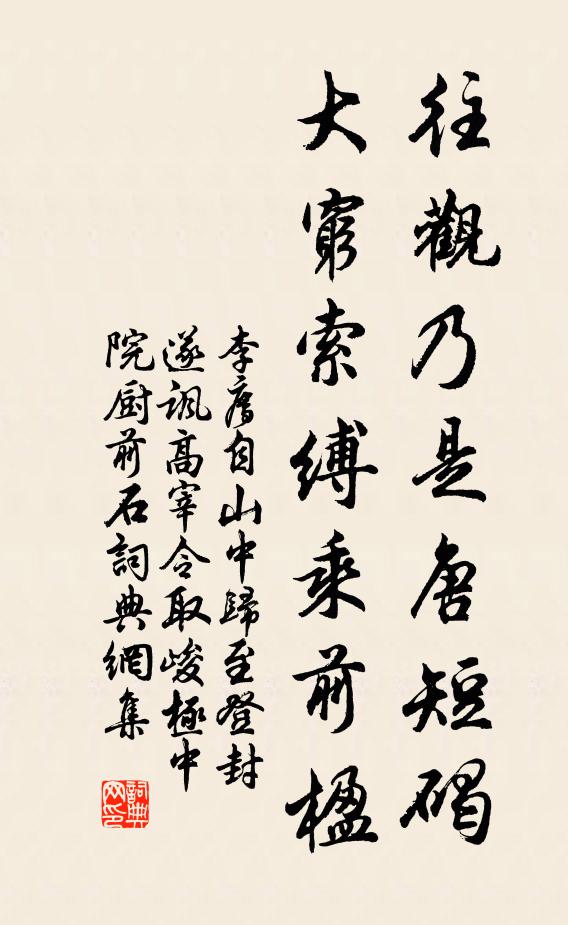 往觀乃是唐短碣
大窮索縛乘前楹
李廌自山中歸至登封
遂訊高宰令取峻極中
院廚前石詞典網集
詞典網印